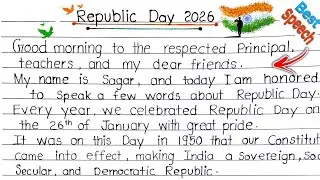 Republic Day 2026
Best Speech
Good morning to the respected Principal,
teachers, and my dear friends.
My name is Sagar, and today I am honored
to speak a few words about Republic Day.
Every year, we celebrated Republic Day on
the 26th of January with great pride.
It was on this Day in 1950 that our Constitut
came into effect, making India a Sovereign, Soc
Secular, and Democratic Republic.